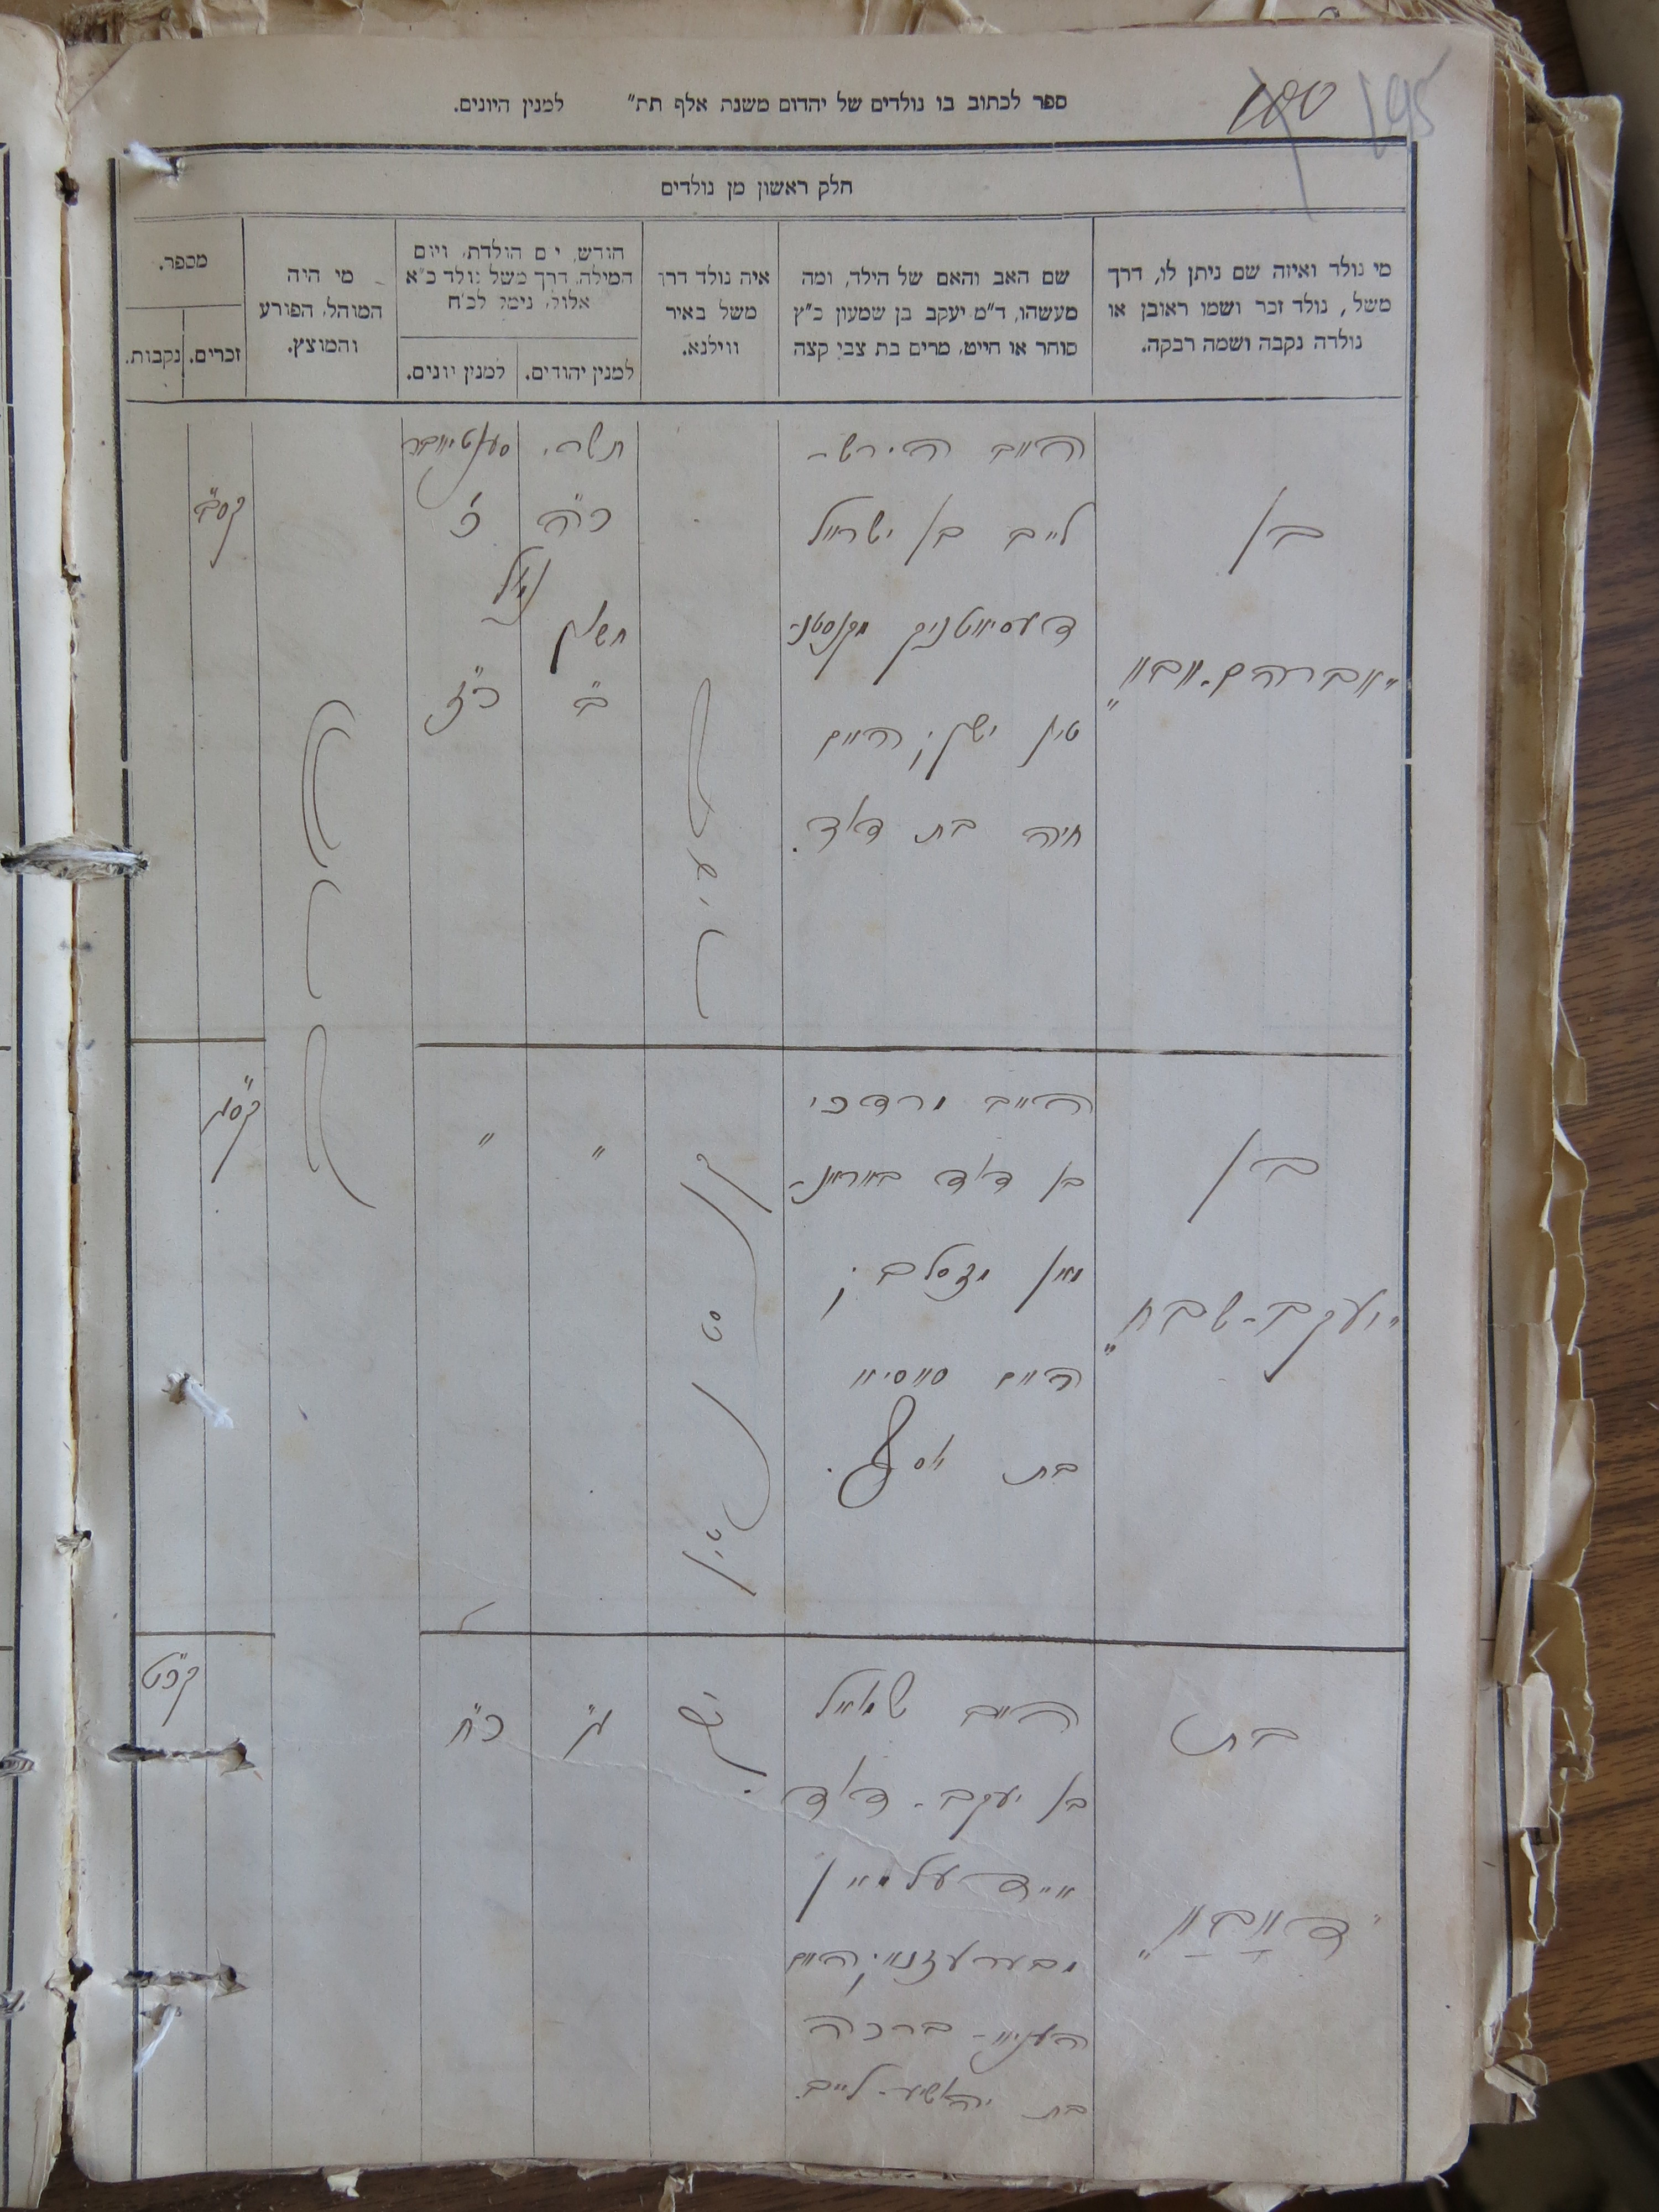 180 195
ספר לכתוב בו נולדים של יהדום משנת אלף תת״ למנין היונים.
חלק ראשון מן נולדים
מי נולד ואיזה שם ניתן לו, דרך
משל, נולד זכר ושמו ראובן או
נולדה נקבה ושמה רבקה.
שם האב והאם של הילד, ומה
מעשהו, ד״מ יעקב בן שמעון כ״ץ
סוחר או חייט, מרים בת צבי קצה
איה נולד דרך
משל באיר
ווילנא.
חודש, יום הולדת, ויום
המילה, דרך משל נולד כ״א
אלול, נימל לכ״ח
למנין יהודים.
למנין יונים.
מי היה
המוהל, הפורע
והמוצץ.
מספר.
זכרים.
נקבות.
בן
״אברהם-אבא״
האב הירש-
לייב בן ישראל
טין ישן; האם
חיה בת דוד.
העיר
תשרי
כ״ה
חשון
ב״
סענטיאבר
כ׳
נימול
כ״ז
קס״ב
בן
״יעקב-שבח״
האב מרדכי
בן דוד
האם סאסיא
בת יוסף.
קאנסטאנטין
״
״
קס״ג
בת
״דאבא״
האב שמואל
בן יעקב-דוד
איידעלמאן
האם
העניא-ברכה
בת יהושע-לייב.
ישן.
ג״
כ״ח
קכ״ט